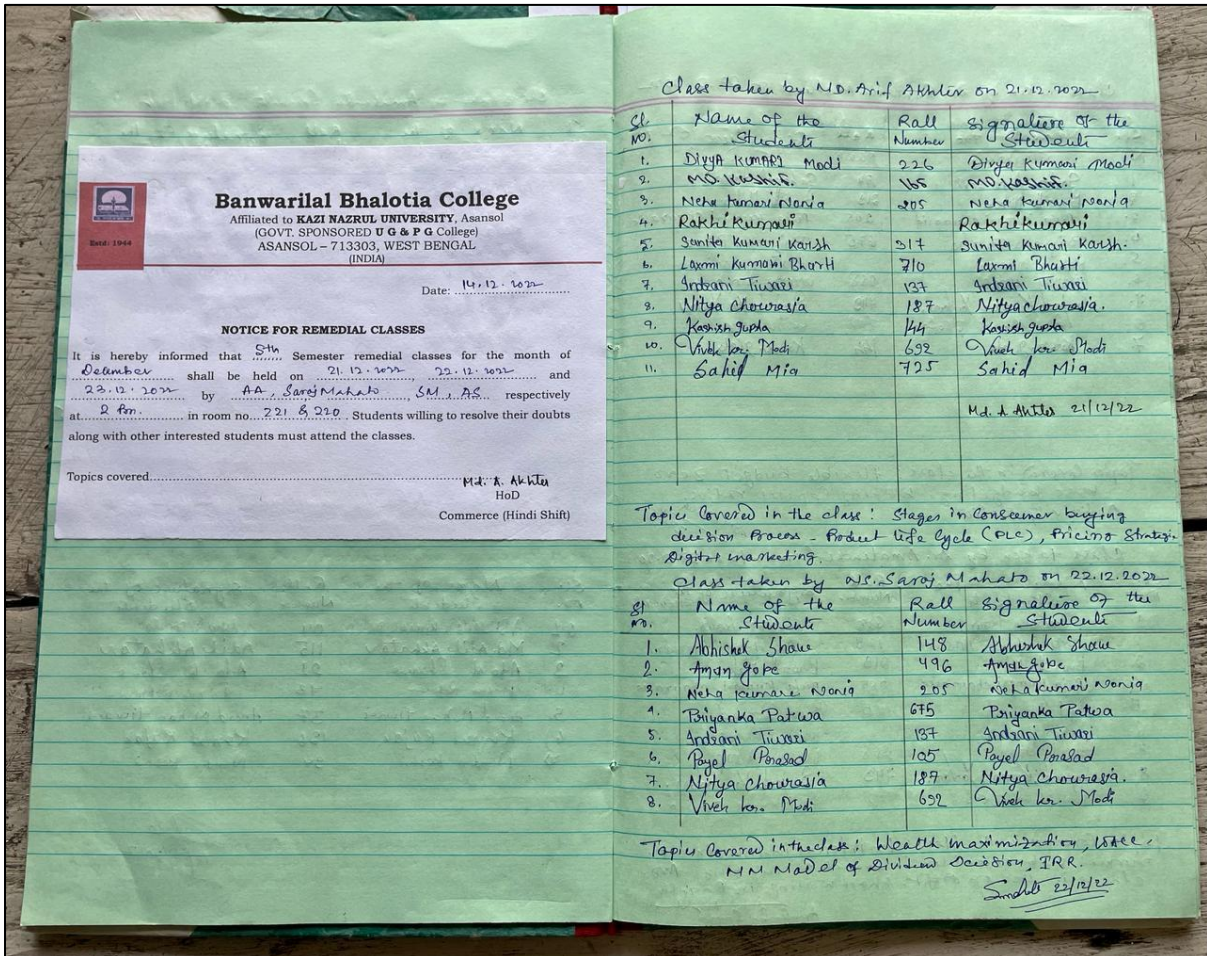 Estd: 1944
Banwarilal Bhalotia College
Affiliated to KAZI NAZRUL UNIVERSITY, Asansol
(GOVT. SPONSORED U G & P G College)
ASANSOL – 713303, WEST BENGAL
(INDIA)
Date: 14.12.2022
NOTICE FOR REMEDIAL CLASSES
It is hereby informed that 5th Semester remedial classes for the month of
December shall be held on 21.12.2022, 22.12.2022 and
23.12.2022 by AA, Saroj Mahato, SM, AS respectively
at 2 Pm. in room no. 221 & 220 Students willing to resolve their doubts
along with other interested students must attend the classes.
Topics covered
Md. A. Akhter
HoD
Commerce (Hindi Shift)
Class taken by MD. Arif Akhter on 21.12.2022
Sl. Name of the Roll Signature of the
No. Students Number Students
1. Divya KUMARI Modi 226 Divya Kumari Modi
2. MD. Kashif. 165 MD. Kashif.
3. Neha Kumari Nonia 205 Neha Kumari Nonia
4. Rakhi Kumari Rakhi Kumari
5. Sunita Kumari Karsh 317 Sunita Kumari Karsh.
6. Laxmi Kumari Bharti 710 Laxmi Bharti
7. Indrani Tiwari 137 Indrani Tiwari
8. Nitya Chourasia 187 Nitya chourasia.
9. Kashish gupta 144 Kashish gupta
10. Vivek kr. Modi 692 Vivek kr. Modi
11. Sahid Mia 725 Sahid Mia
Md. A. Akhter 21/12/22
Topics Covered in the class: Stages in Consumer buying
decision Process - Product life Cycle (PLC), Pricing Strategic
Digital marketing.
Class taken by Saroj Mahato on 22.12.2022
Sl Name of the Roll Signature of the
No. Students Number Students
1. Abhishek Shaw 148 Abhishek Shaw
2. Aman gope 496 Aman gope
3. Neha Kumari Nonia 205 Neha Kumari Nonia
4. Priyanka Patwa 675 Priyanka Patwa
5. Indrani Tiwari 137 Indrani Tiwari
6. Payel Prasad 105 Payel Prasad
7. Nitya Chourasia 187 Nitya Chourasia.
8. Vivek kr. Modi 692 Vivek kr. Modi
Topics Covered in the class: Wealth maximization, WACC,
MM Model of Dividend Decision, IRR.
22/12/22